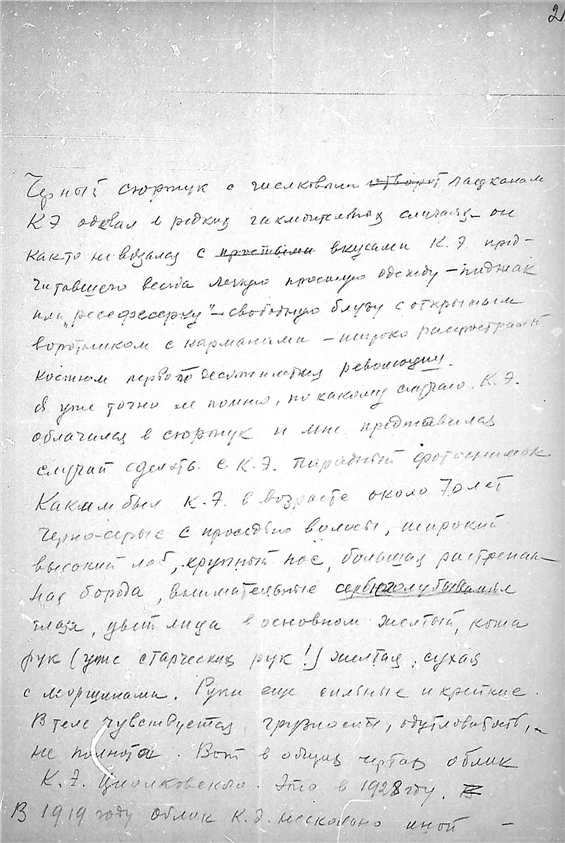 2
Черный сюртук с шелковыми лацканами
К.Э. одевал в редких исключительных случаях – он
как-то не вязался с простыми вкусами К.Э. пред-
читавшего всегда легкую простую одежду – пиджак
или „ресефесерку" – свободную блузу с открытым
воротником с карманами – широко распространен
костюм первого десятилетия революции.
Я уже точно не помню, по какому случаю К.Э.
облачился в сюртук и мне представился
случай сделать с К.Э. парадный фотоснимок
Каким был К.Э. в возрасте около 70 лет
Черно-серые с проседью волосы, широкий
высокий лоб, крупный нос, большая растрепан-
ная борода, внимательные
глаза, цвет лица в основном желтый, кожа
рук (уже старческих рук!) желтая, сухая
с морщинами. Руки еще сильные и крепкие.
В теле чувствуется грузность, одутловатость,
не полнота. Вот в общих чертах облик
К.Э. Циолковского. Это в 1928 году. В
В 1919 году облик К.Э. несколько иной –